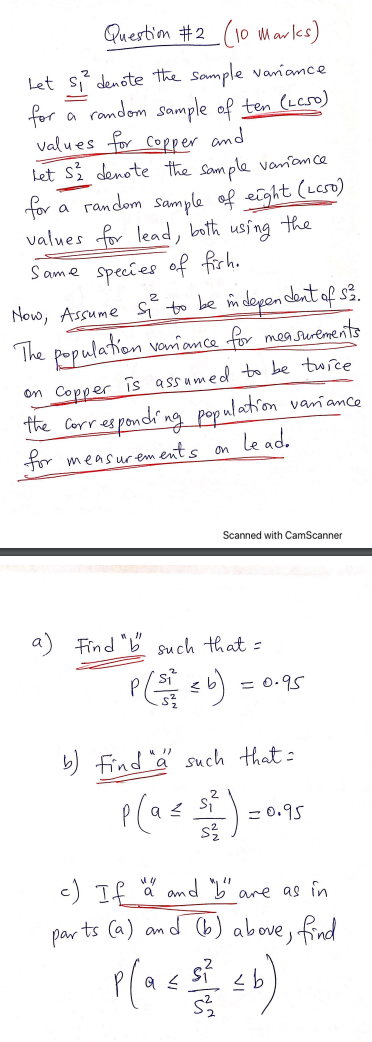 Question #2 (10 Marks)
Let S₁² denote the sample variance
for a random sample of ten (LC50)
values for Copper and
Let S₂² denote the sample variance
for a random sample of eight (LC50)
values for lead, both using the
Same species of fish.
Now, Assume S₁² to be independent of S₂².
The population variance for measurements
on Copper is assumed to be twice
the corresponding population variance
for measurements on lead.
Scanned with CamScanner
a) Find "b" such that =
P(S₁²/S₂² ≤ b) = 0.95
b) Find "a" such that =
P(a ≤ S₁²/S₂²) = 0.95
c) If "a" and "b" are as in
parts (a) and (b) above, find
P(a ≤ S₁²/S₂² ≤ b)